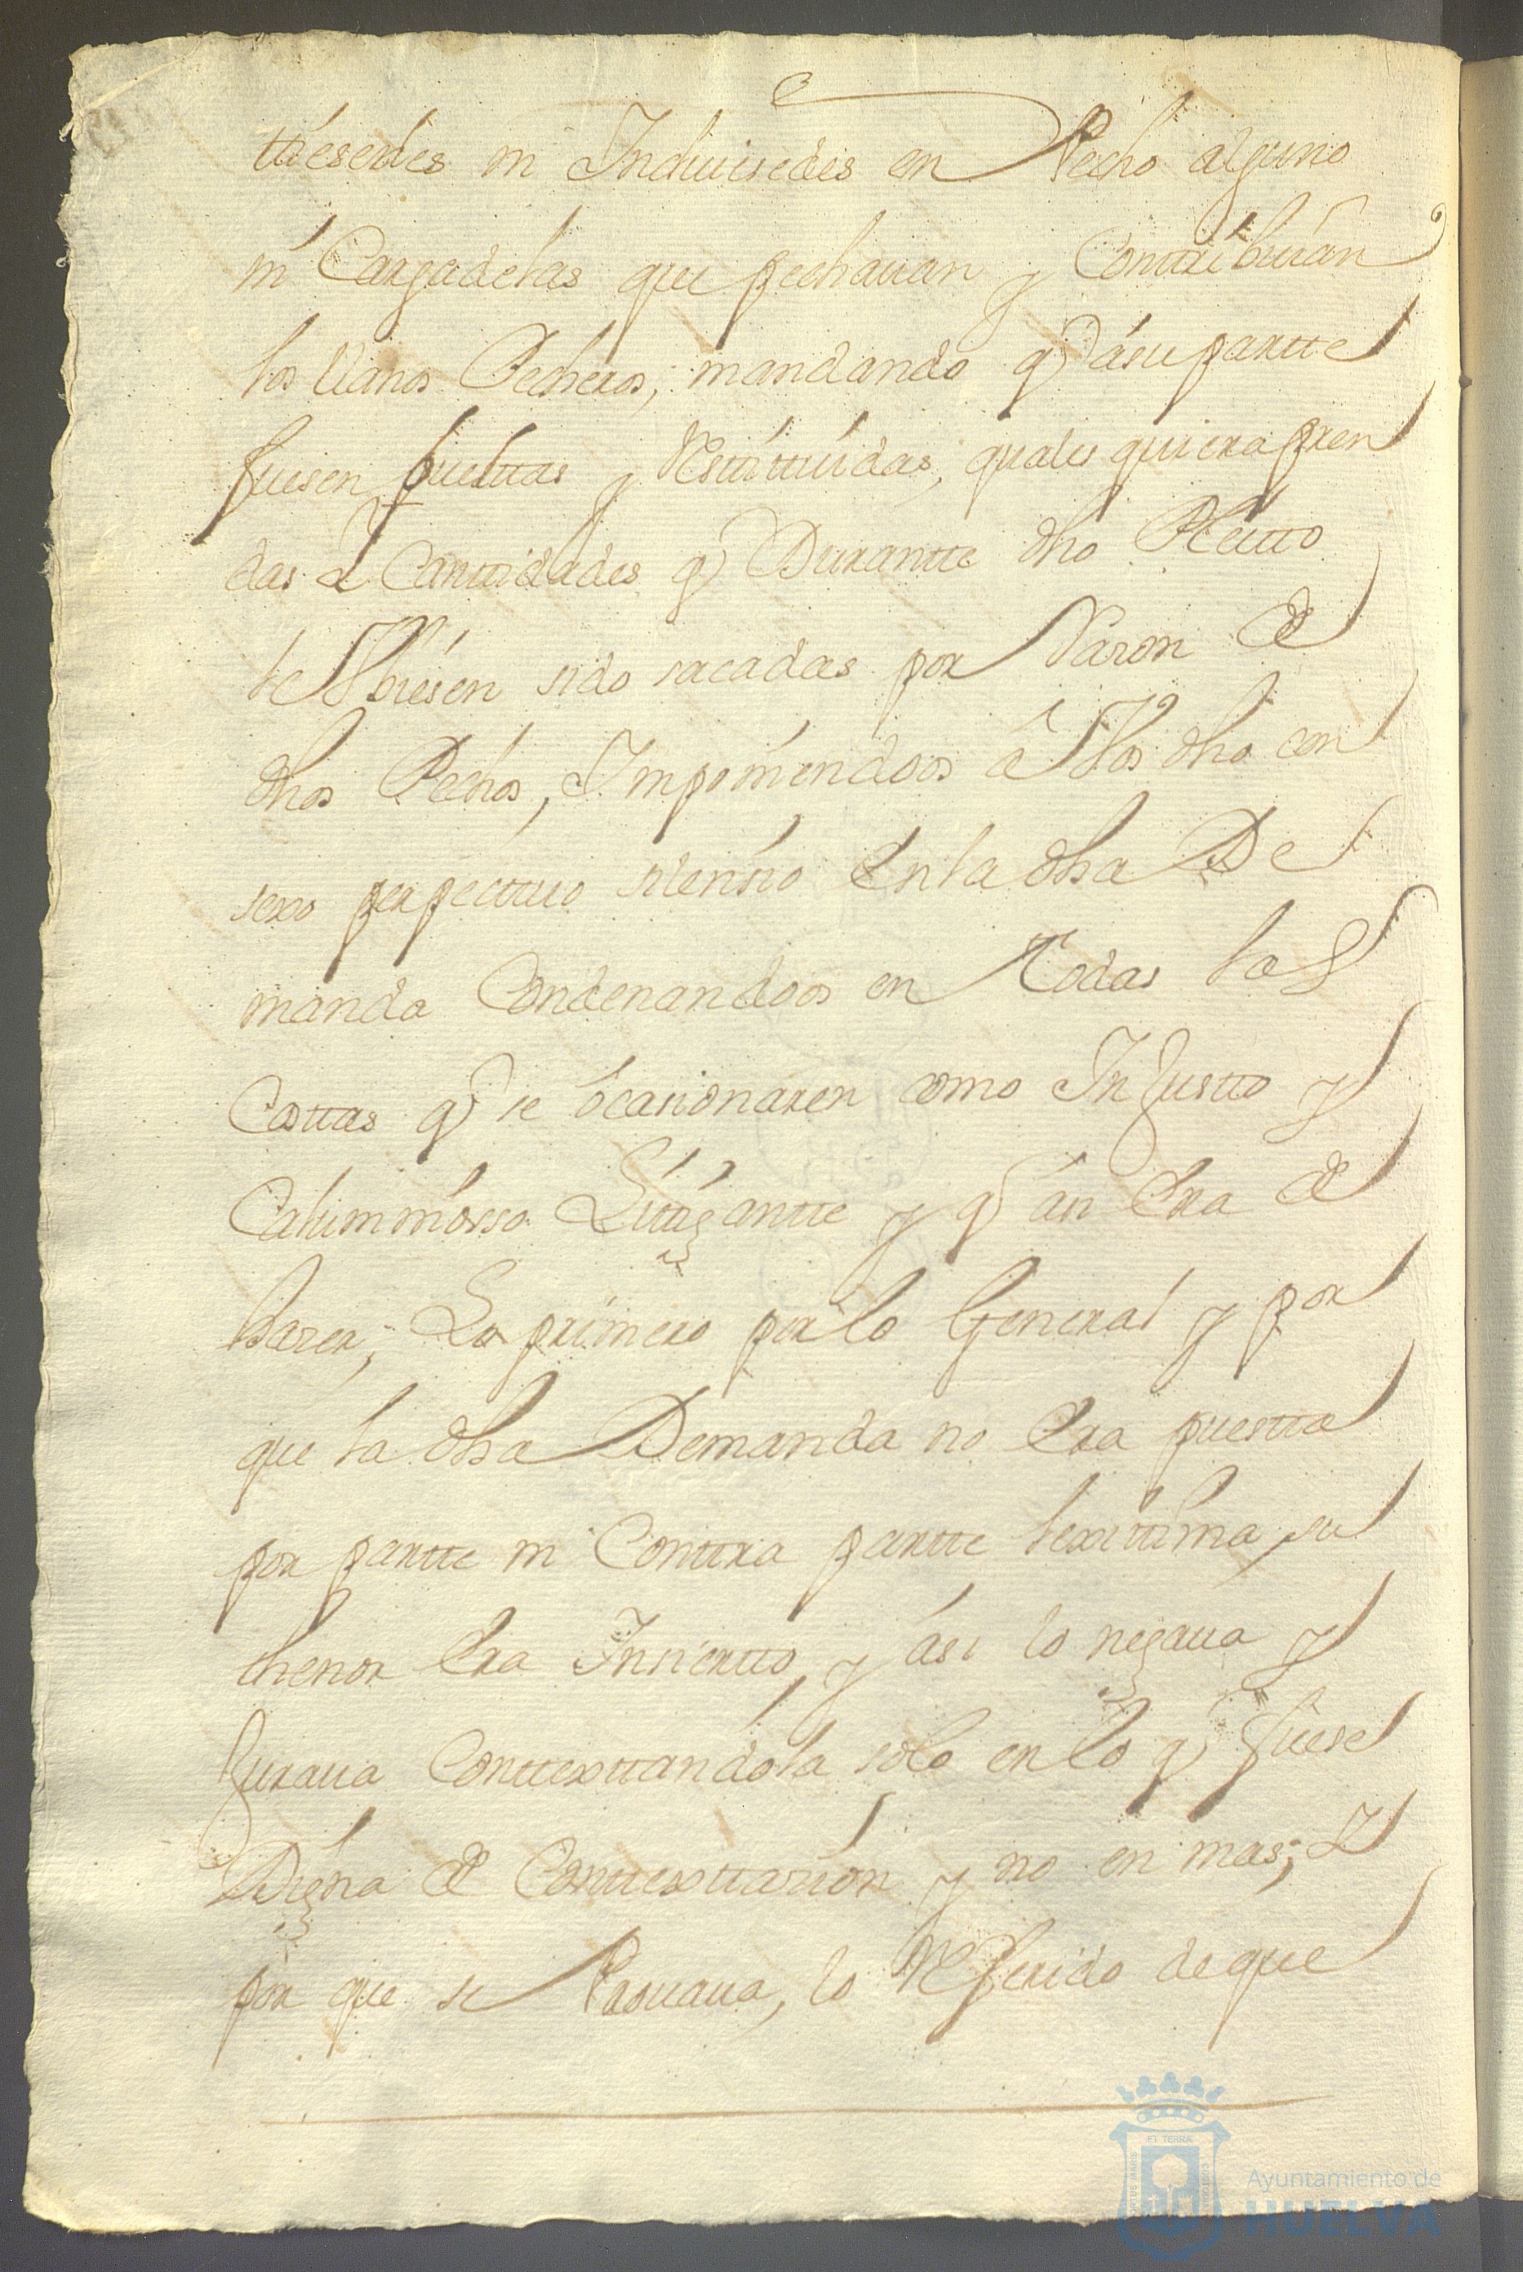 tiesedes ni Induiesedes en Pecho alguno
ni Carga delas que pechauan y Contribuían
los llanos Pecheros, mandando q̄ ásu partte
fuesen bueltas y Restittuidas, quales quiera pren
das I Canttidades q̄ Durantte dho Pleitto
le Vbiesen sido sacadas por Razon de
dhos Pechos, Imponiendoos â Vos dho con
sexo perpettuo silensio En la dha De
manda Condenandoos en Todas las
Costtas q̄ se ôcasionaren como Injustto y
Calumniosso Littigantte y q̄ ási Era de
hazer; Lo primero por lo General y por
que la dha Demanda no Era puestta
por partte ni Conttra partte lexittima, su
thenor Era Insiertto, y ási lo negaua y
Juraua Conttexttandola solo en lo q̄ fuese
Digna de Conttexttazion y no en mas; Y
por que se Prouaua, lo Referido de que
Ayuntamiento de
HUELVA